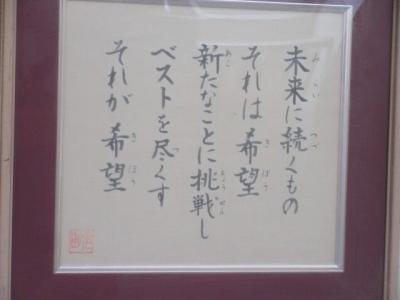 未来に続くもの
それは希望
新たなことに挑戦し
ベストを尽くす
それが希望